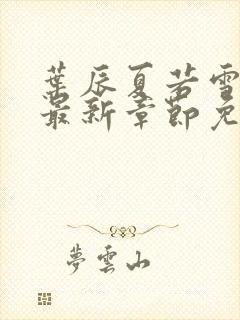 葉辰夏若雪
最新章節免
夢雲山